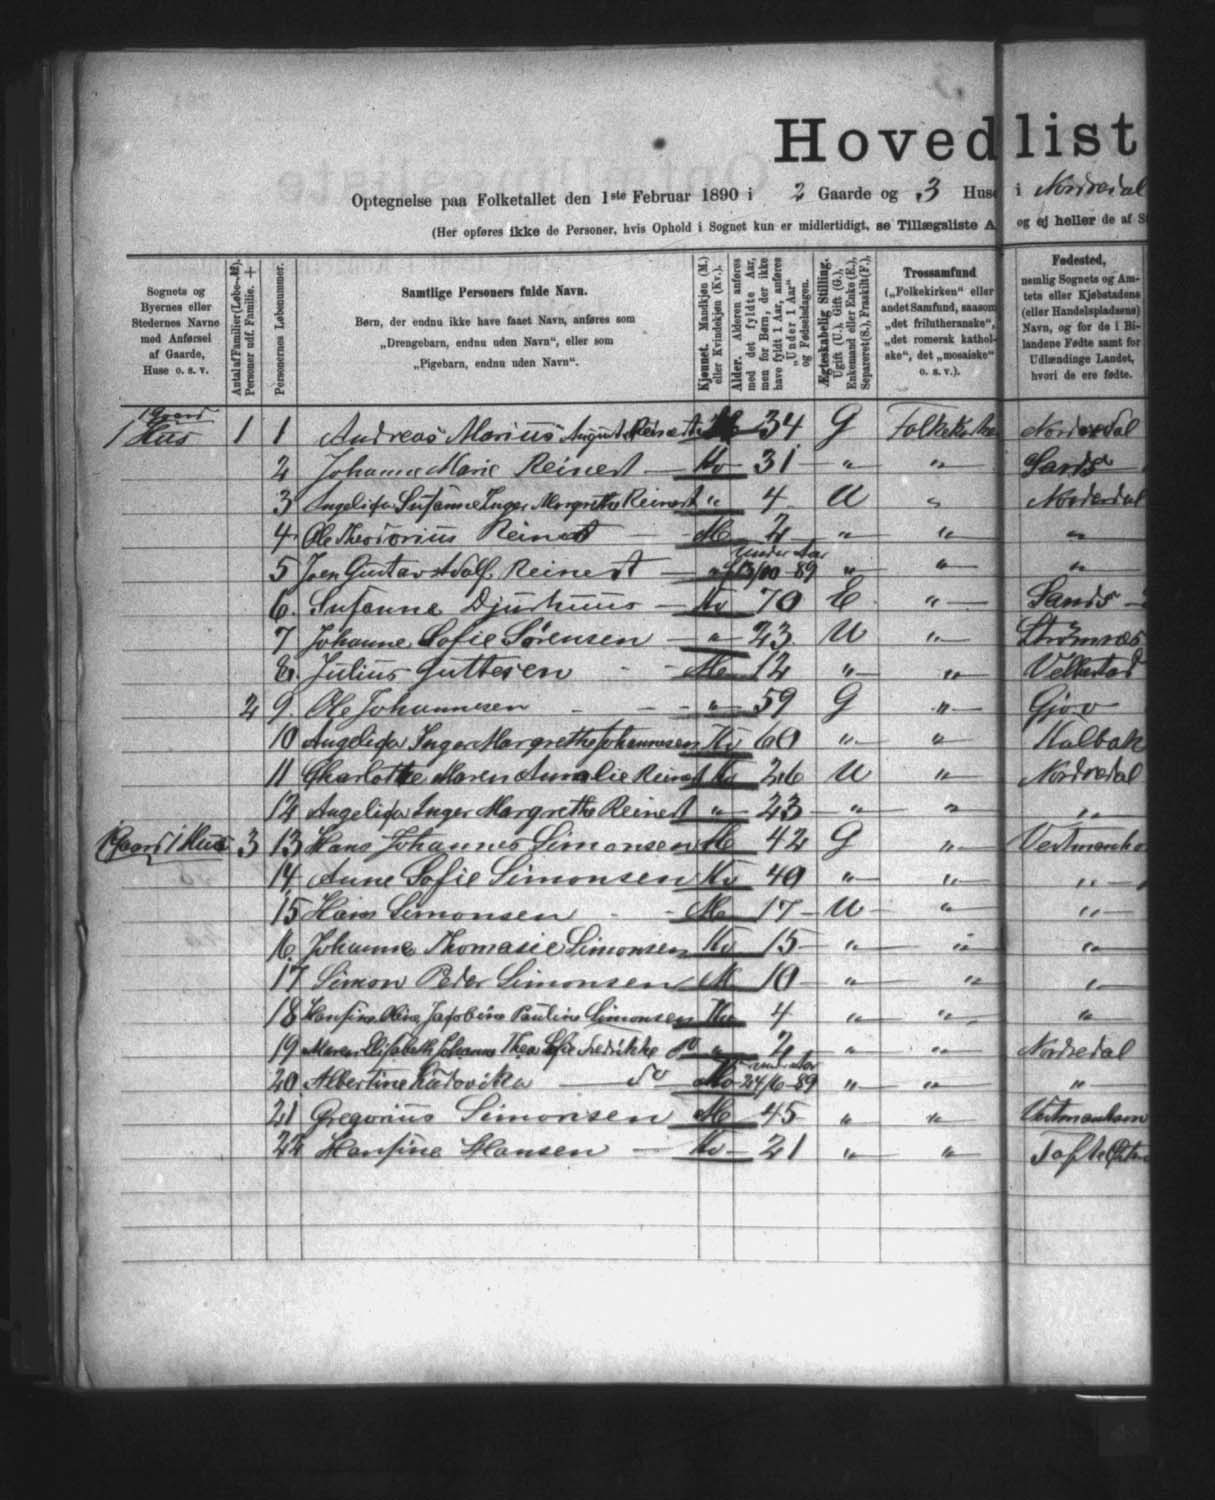 Hovedlist
Optegnelse paa Folketallet den 1ste Februar 1890 i 2 Gaarde og 3 Huse i Nordredal
(Her opføres ikke de Personer, hvis Ophold i Sognet kun er midlertidigt, se Tillægsliste A og ej heller de af S
Sognets og Byernes eller Stedernes Navne med Anførsel af Gaarde, Huse o. s. v.
Antal af Familier (Løbe-№). Personer udf. Familie. +
Personernes Løbenummer.
Samtlige Personers fulde Navn.
Børn, der endnu ikke have faaet Navn, anføres som
„Drengebarn, endnu uden Navn“, eller som
„Pigebarn, endnu uden Navn“.
Kjønnet. Mandkjøn (M.) eller Kvindekjøn (Kv.).
Alder. Alderen anføres med det fyldte Aar, men for Børn, der ikke have fyldt 1 Aar, anføres „Under 1 Aar“ og Fødselsdagen.
Ægteskabelig Stilling. Ugift (U.), Gift (G.), Enkemand eller Enke (E.), Separeret (S.), Fraskilt (F.),
Trossamfund („Folkekirken“ eller andet Samfund, saasom „det frilutheranske“, „det romersk katholske“, det „mosaiske“ o. s. v.).
Fødested, nemlig Sognets og Amtets eller Kjøbstadens (eller Handelspladsens) Navn, og for de i Bilandene Fødte samt for Udlændinge Landet, hvori de ere fødte.
1 Gaard
1 Hus 1 1 Andreas Marius August Reinert M 34 G Folkekirken Nordredal
2 Johanne Marie Reinert Kv 31 „ „ Sands
3 Angelica Susanne Inger Margrethe Reinert „ 4 U „ Nordredal
4 Ole Theodorius Reinert M 2 „ „ „
5 Joen Gustav Adolf Reinert „ under Aar 89 „ „ „
6 Susanne Djurhuus Kv 70 E „ Sands
7 Johanne Sofie Sørensen „ 23 U „
8 Julius Guttesen M 12 „ „ Velbestad
2 9 Ole Johannesen „ 59 G „ Gjov
10 Angelica Inger Margrethe Johannesen Kv 60 „ „ Kalbak
11 Charlotte Maren Amalie Reinert Kv 26 U „ Nordredal
12 Angelica Inger Margrethe Reinert „ 23 „ „ „
1 Gaard 1 Hus 3 13 Hans Johannes Simonsen M 42 G „ Vestmanha
14 Anne Sofie Simonsen Kv 40 „ „ „
15 Hans Simonsen M 17 U „ „
16 Johanne Thomasie Simonsen Kv 15 „ „ „
17 Simon Peder Simonsen M 10 „ „ „
18 Hansine Oline Jacobine Pauline Simonsen Kv 4 „ „ „
19 Maren Elisabeth Johanne Thea Sofie Fredrikke Do „ 2 „ „ Nordredal
20 Albertine Ludovika Do Kv under Aar 24/6 89 „ „ „
21 Gregorius Simonsen M 45 „ „ Vestmanham
22 Hansine Hansen Kv 21 „ „